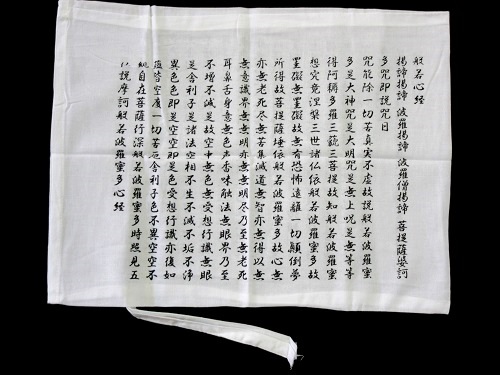 仏説摩訶般若波羅蜜多心経
観自在菩薩行深般若波羅蜜多時照見五
蘊皆空度一切苦厄舎利子色不異空空不
異色色即是空空即是色受想行識亦復如
是舎利子是諸法空相不生不滅不垢不浄
不増不減是故空中無色無受想行識無眼
耳鼻舌身意無色声香味触法無眼界乃至
無意識界無無明亦無無明尽乃至無老死
亦無老死尽無苦集滅道無智亦無得以無
所得故菩提薩埵依般若波羅蜜多故心無
罣礙無罣礙故無有恐怖遠離一切顛倒夢
想究竟涅槃三世諸仏依般若波羅蜜多故
得阿耨多羅三藐三菩提故知般若波羅蜜
多是大神咒是大明咒是無上咒是無等等
咒能除一切苦真実不虚故説般若波羅蜜
多咒即説咒曰
掲諦掲諦 波羅掲諦 波羅僧掲諦 菩提薩婆訶
般若心経